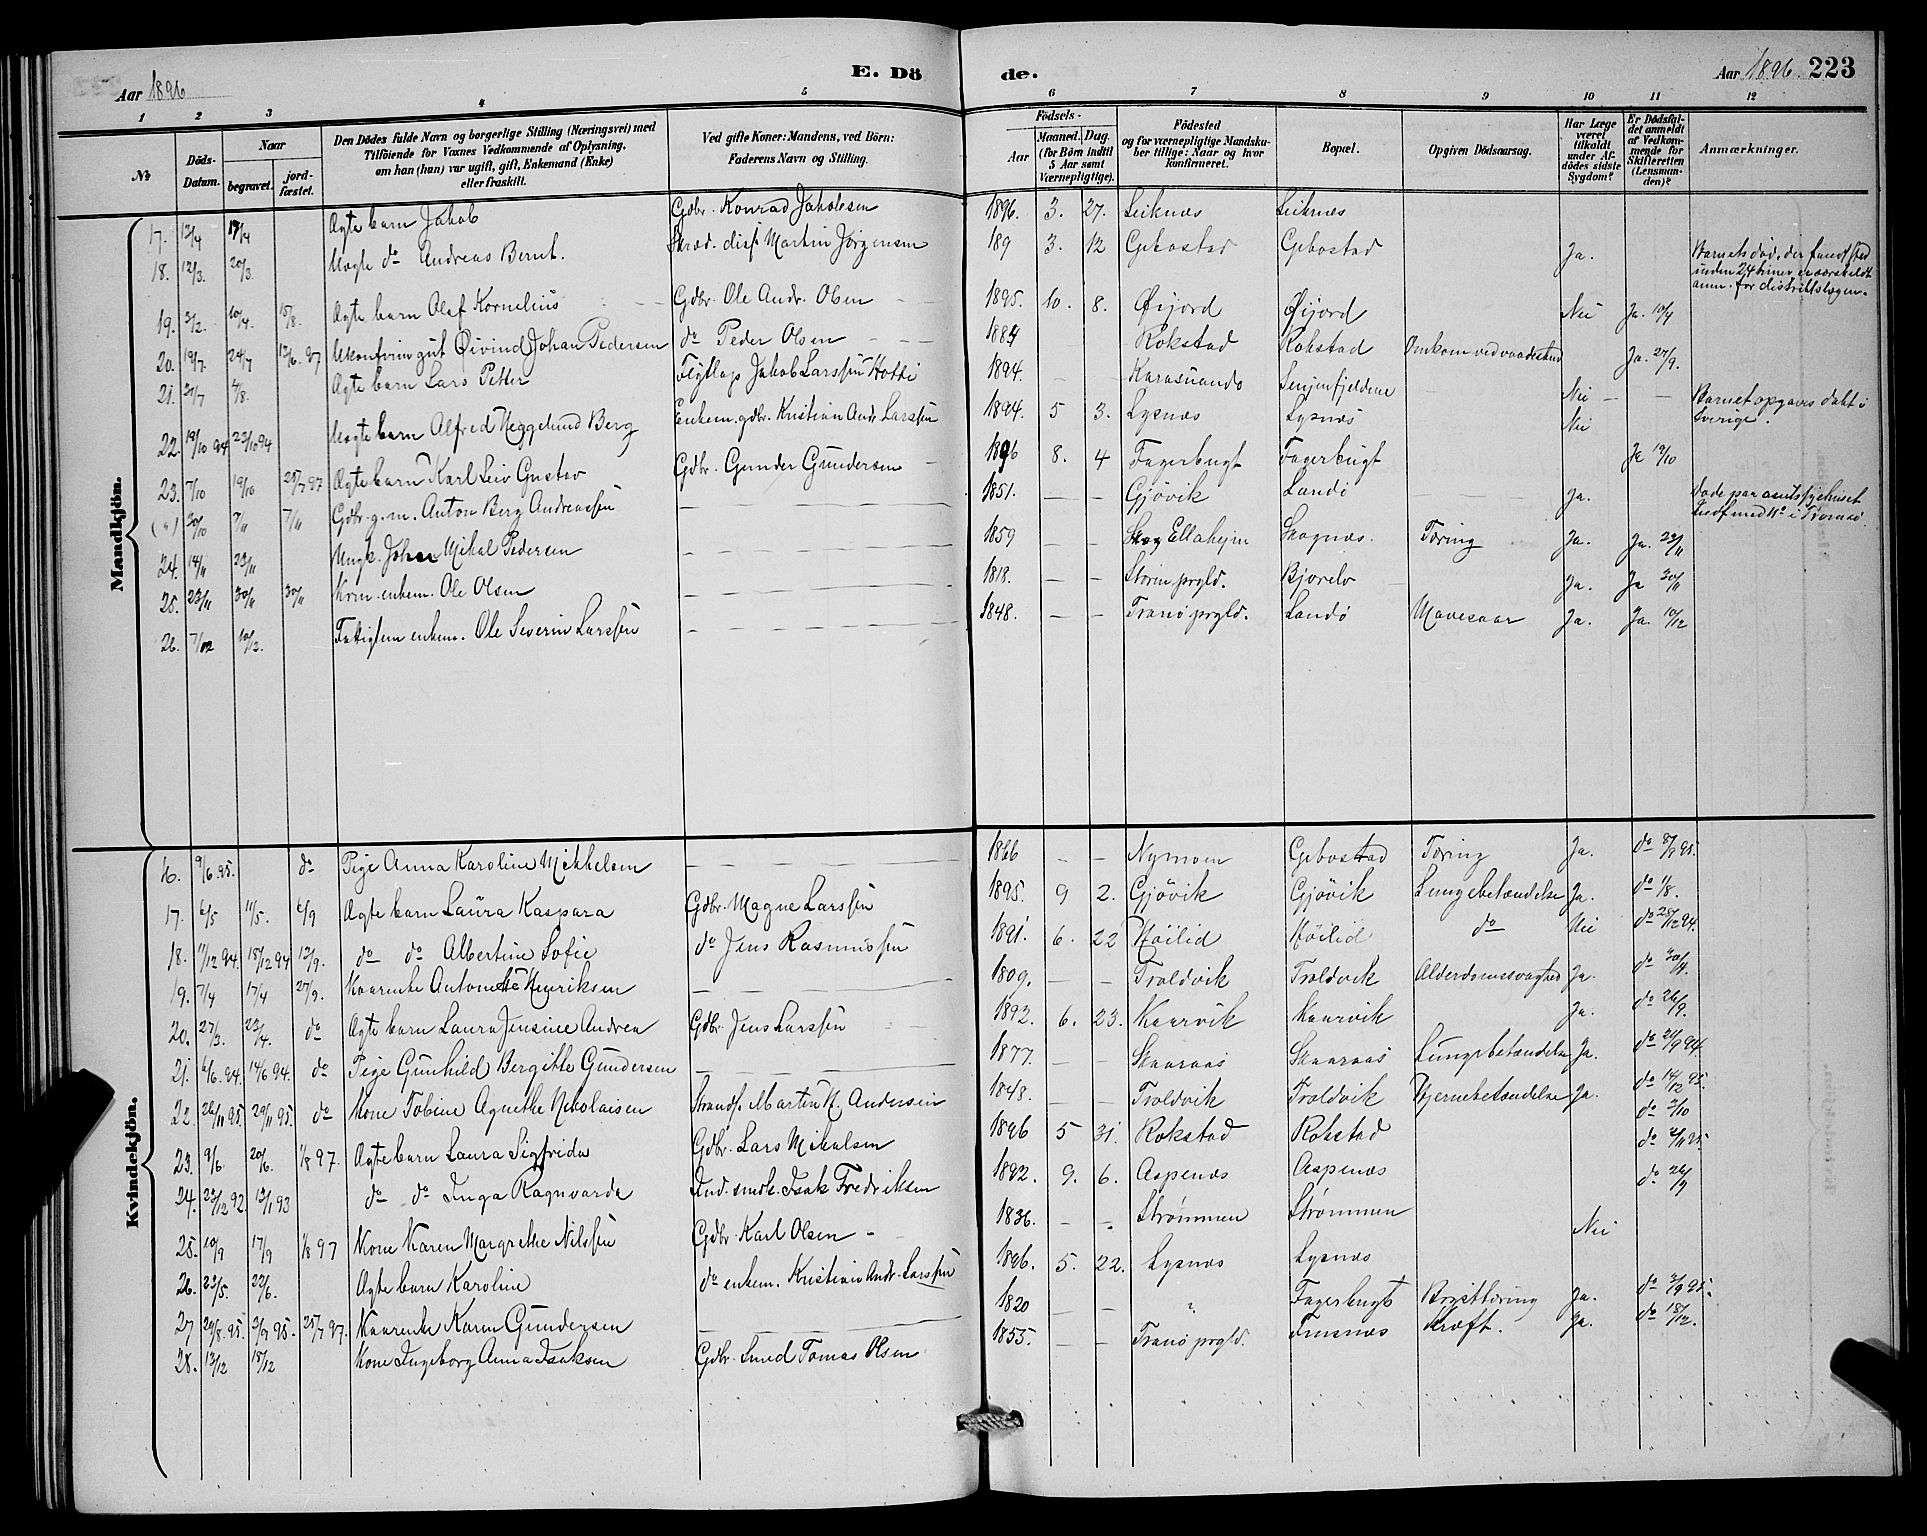 Aar 1896
E. Dö
de.
Aar 1896. 223
1 2 3 4 5 6 7 8 9 10 11 12
No
Döds-Datum.
Naar
begravet.
jord-fæstet.
Den Dödes fulde Navn og borgerlige Stilling (Næringsvei) med
Tilföiende for Voxnes Vedkommende af Oplysning,
om han (hun) var ugift, gift, Enkemand (Enke)
eller fraskilt.
Ved gifte Koner: Mandens, ved Börn:
Faderens Navn og Stilling.
Födsels-
Aar
Maaned. Dag.
(for Börn indtil
5 Aar samt
Værnepligtige).
Födested
og for værnepligtige Mandska-
ber tillige: Naar og hvor
konfirmeret.
Bopæl.
Opgiven Dödsaarsag.
Har Læge
været
tilkaldt
under Af-
dödes sidste
Sygdom?
Er Dödsfal-
det anmeldt
af Vedkom-
mende for
Skifteretten
(Lensman-
den)?
Anmærkninger.
Mandkjön.
17. 12/4 19/4 Ægte barn Jakob Gdbr. Konrad Jakobsen 1896. 3. 27. Leiknæs Leiknæs
18. 12/3. 20/3. Uægte do Andreas Bernt. Martin Jørgensen 189 3. 12 Gebostad Gebostad Ja.
Barnets død, der fandt sted
inden 24 timer, er særskildt
anm. for distriktslægen.
19. 2/2. 10/4. 15/8. Ægte barn Olaf Kornelius Gdbr. Ole Andr. Olsen 1895. 10. 8. Øijord Øijord Nei Ja. 10/4
20. 19/7. 24/7 13/6. 97 Ukonfirm gut Øivind Johan Pedersen do Peder Olsen 1884 Rokstad Rokstad Omkom ved vaadeskud Ja. 27/9.
21. 31/7 4/8. Ægte barn Lars Petter Flytlap Jakob Larssen Hotti 1894. Karasuando Senjenfjeldene Nei
Barnet opgaves døbt i
Sverige.
22. 19/10 94 23/10 94 Uægte barn Alfred Heggelund Berg Enkem. gdbr. Kristian Andr. Larssen 1894. 5 3. Lysnæs Lysnæs Nei
23. 7/10 19/10 25/7 97 Ægte barn Karl Leiv Gustav Gdbr. Gunder Gundersen 1896 8. 4 Fagerbugt Fagerbugt Ja 19/10
30/10 7/11 7/11 Gdbr. g. m. Anton Berg Andreassen 1851. Gjövik Landö Ja.
Døde paa amtssygehuset
indf med No i Tromsø.
24. 14/11 23/11 Ungk. Johan Mikal Pedersen 1859 Ellahejm Skognæs. Tæring Ja. Ja. 23/11
25. 23/11 30/11 30/11 enkem. Ole Olsen 1818. prgld. Bjorelv Ja. Ja 30/11
26. 7/12 10/12. Fattiglem enkem. Ole Severin Larssen 1848. Tranö prgld. Landö Mavesaar Ja. Ja. 10/12
Kvindekjön.
16. 9/6. 95. do Pige Anna Karoline Mikkelsen 1866 Nymoen Gebostad Tæring Ja. do 8/9 95.
17. 6/5 11/5. 6/9 Ægte barn Laura Kaspara Gdbr. Magne Larssen 1895. 9 2. Gjövik Gjövik Lungebetændelse Ja. do 1/8.
18. 11/12 94. 18/12 94 13/9. do do Albertine Sofie do Jens Rasmussen 1891. 6. 22 Höilid Höilid do Nei do 28/12 94.
19. 7/4 17/4 27/9. Kaarenke Antonette Henriksen 1809. Troldvik Troldvik Alderdomssvaghed Ja. do 30/4.
20. 27/3. 23/4. do Ægte barn Laura Jensine Andrea Gdbr. Jens Larssen 1892. 6. 23. Kaarvik Kaarvik Ja. do 26/9.
21. 6/6. 94. 14/6 94. do Pige Gunhild Bergitte Gundersen 1877. Skaaraas Skaaraas Lungebetændelse Ja. do 21/9 94.
22. 26/11 95. 29/11 95. do Kone Tobine Agnethe Nikolaisen Strands. Martin N. Andersen 1848. Troldvik Troldvik Hjernebetændelse Ja. do 14/12 95.
23. 9/6. 20/6. 1/8 97. Ægte barn Laura Sigfrida Gdbr. Lars Mikalsen 1896 5 31. Rokstad Rokstad do 3/10
24. 23/12 92. 13/1 93 do do Inga Ragnvarda Ind. smdk. Isak Fredriksen 1892. 9. 6. Aspenæs Aspenæs do 2/11 95.
25. 10/9 17/9 1/8 97 Kone Karen Margrethe Nilssen Gdbr. Karl Olsen 1836. Strømmen Strømmen Nei do 26/9
26. 23/5. 22/6. Ægte barn Karoline do enkem. Kristian Andr. Larssen 1896. 5. 22. Lysnæs Lysnæs
27 29/8. 95. 3/9 95. 25/7 97. Kaarenke Karen Gundersen 1820 Fagerbugt Brysttæring Ja. do 3/9 95.
28. 13/12 18/12 Kone Ingeborg Anna Isaksen Gdbr. Tomas Olsen 1855. Tranö prgld. Finsnæs Kræft. Ja. do 18/12.